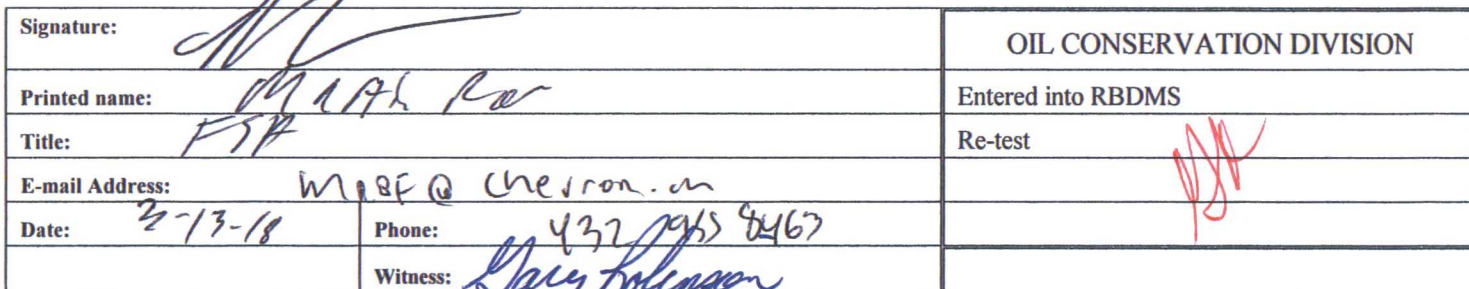 Signature:
Printed name:
Title: FSA
E-mail Address: @ chevron.
Date: 3-13-18 Phone: 432 8463
Witness: Gary Robinson
OIL CONSERVATION DIVISION
Entered into RBDMS
Re-test